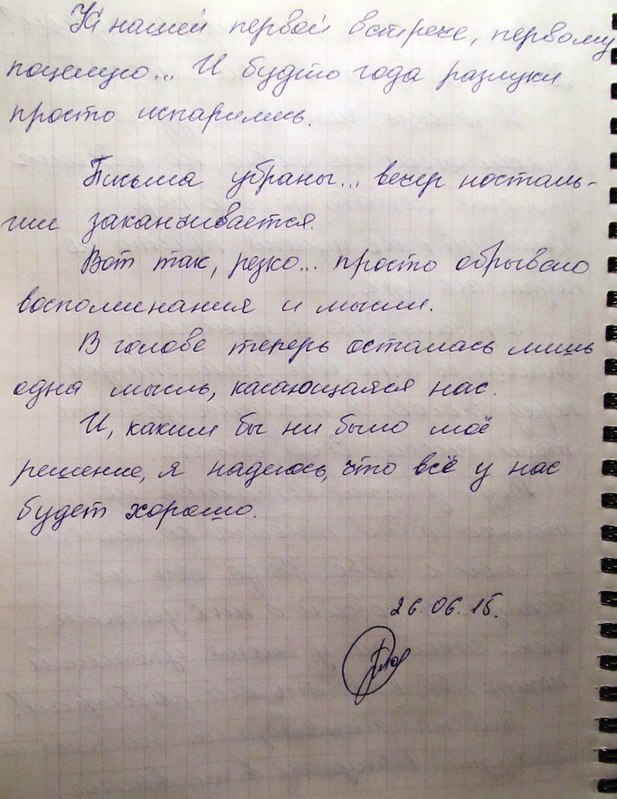 К нашей первой встрече, первому
поцелую... И будто года разлуки
просто испарились.
Письма убраны... вечерносталь-
гии заканчивается.
Вот так, резко... просто обрывая
воспоминания и мысли.
В голове теперь осталась лишь
одна мысль, касающаяся нас.
И, каким бы ни было моё
решение, я надеюсь, что всё у нас
будет хорошо.
26.06.15.